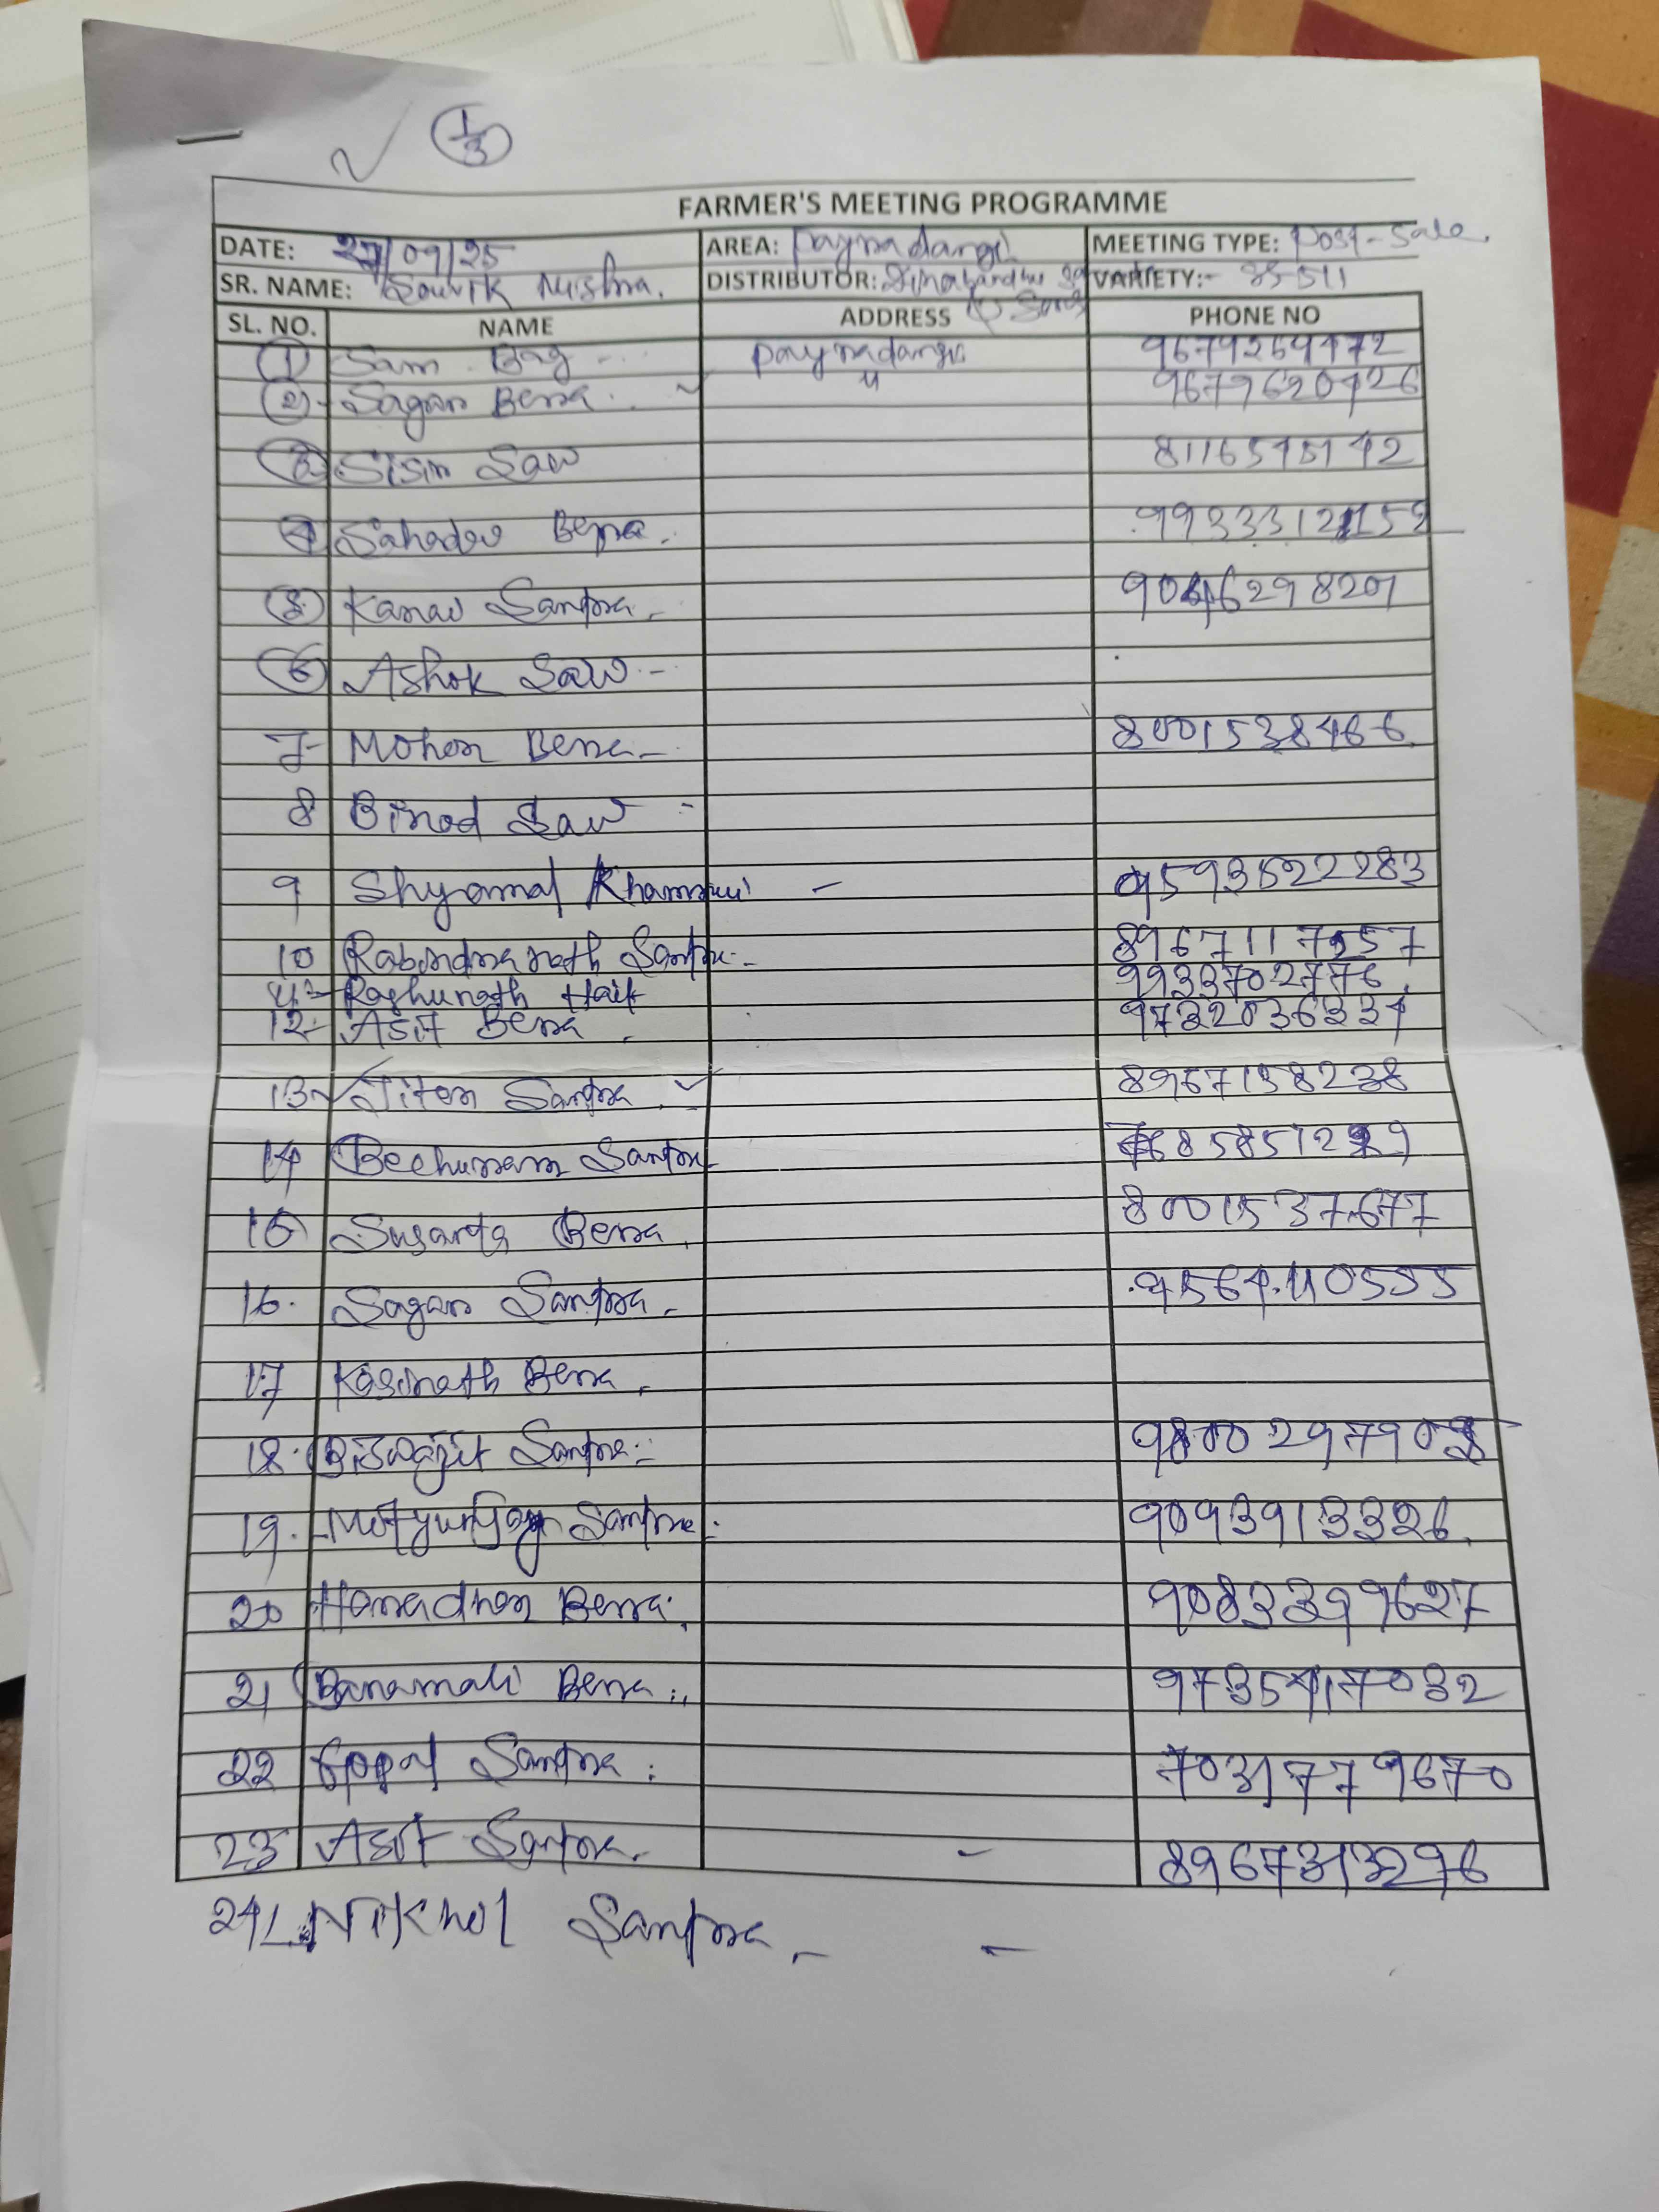 1/3
FARMER'S MEETING PROGRAMME
DATE: 27/09/25 AREA: Paynadangi MEETING TYPE: Post-Sale.
SR. NAME: Souvik Mishra. DISTRIBUTOR: Dinabandhu & Sons VARIETY:- SS 511
SL. NO. NAME ADDRESS PHONE NO
1 Sam Bag Paynadangi 9679269472
2 Sagar Bera. " 9679620426
3 Sisir Saw 8116545142
4 Sahadev Bera. 9933312152
5 Kanai Santra. 9046298201
6 Ashok Saw -
7 Mohon Bera - 8001538466.
8 Binod Saw -
9 Shyamal Khamrui - 9593522283
10 Rabindranath Santra. 8967117257
11 Raghunath Hait 9933702776
12 Asit Bera. 9732036334
13 Jiten Santra. 8967158238
14 Becharam Santra 8585129
15 Susanta Bera. 8001537677
16. Sagar Santra. 9564110555
17 Kasinath Bera.
18. Biswajit Santra. 980029790
19. Mrityunjoy Santra. 9093913326.
20 Haradhon Bera. 9083399627
21 Banamali Bera. 9735417032
22 Gopal Santra. 7031779670
23 Asit Santra. - 8967313296
24 Nikhil Santra. -